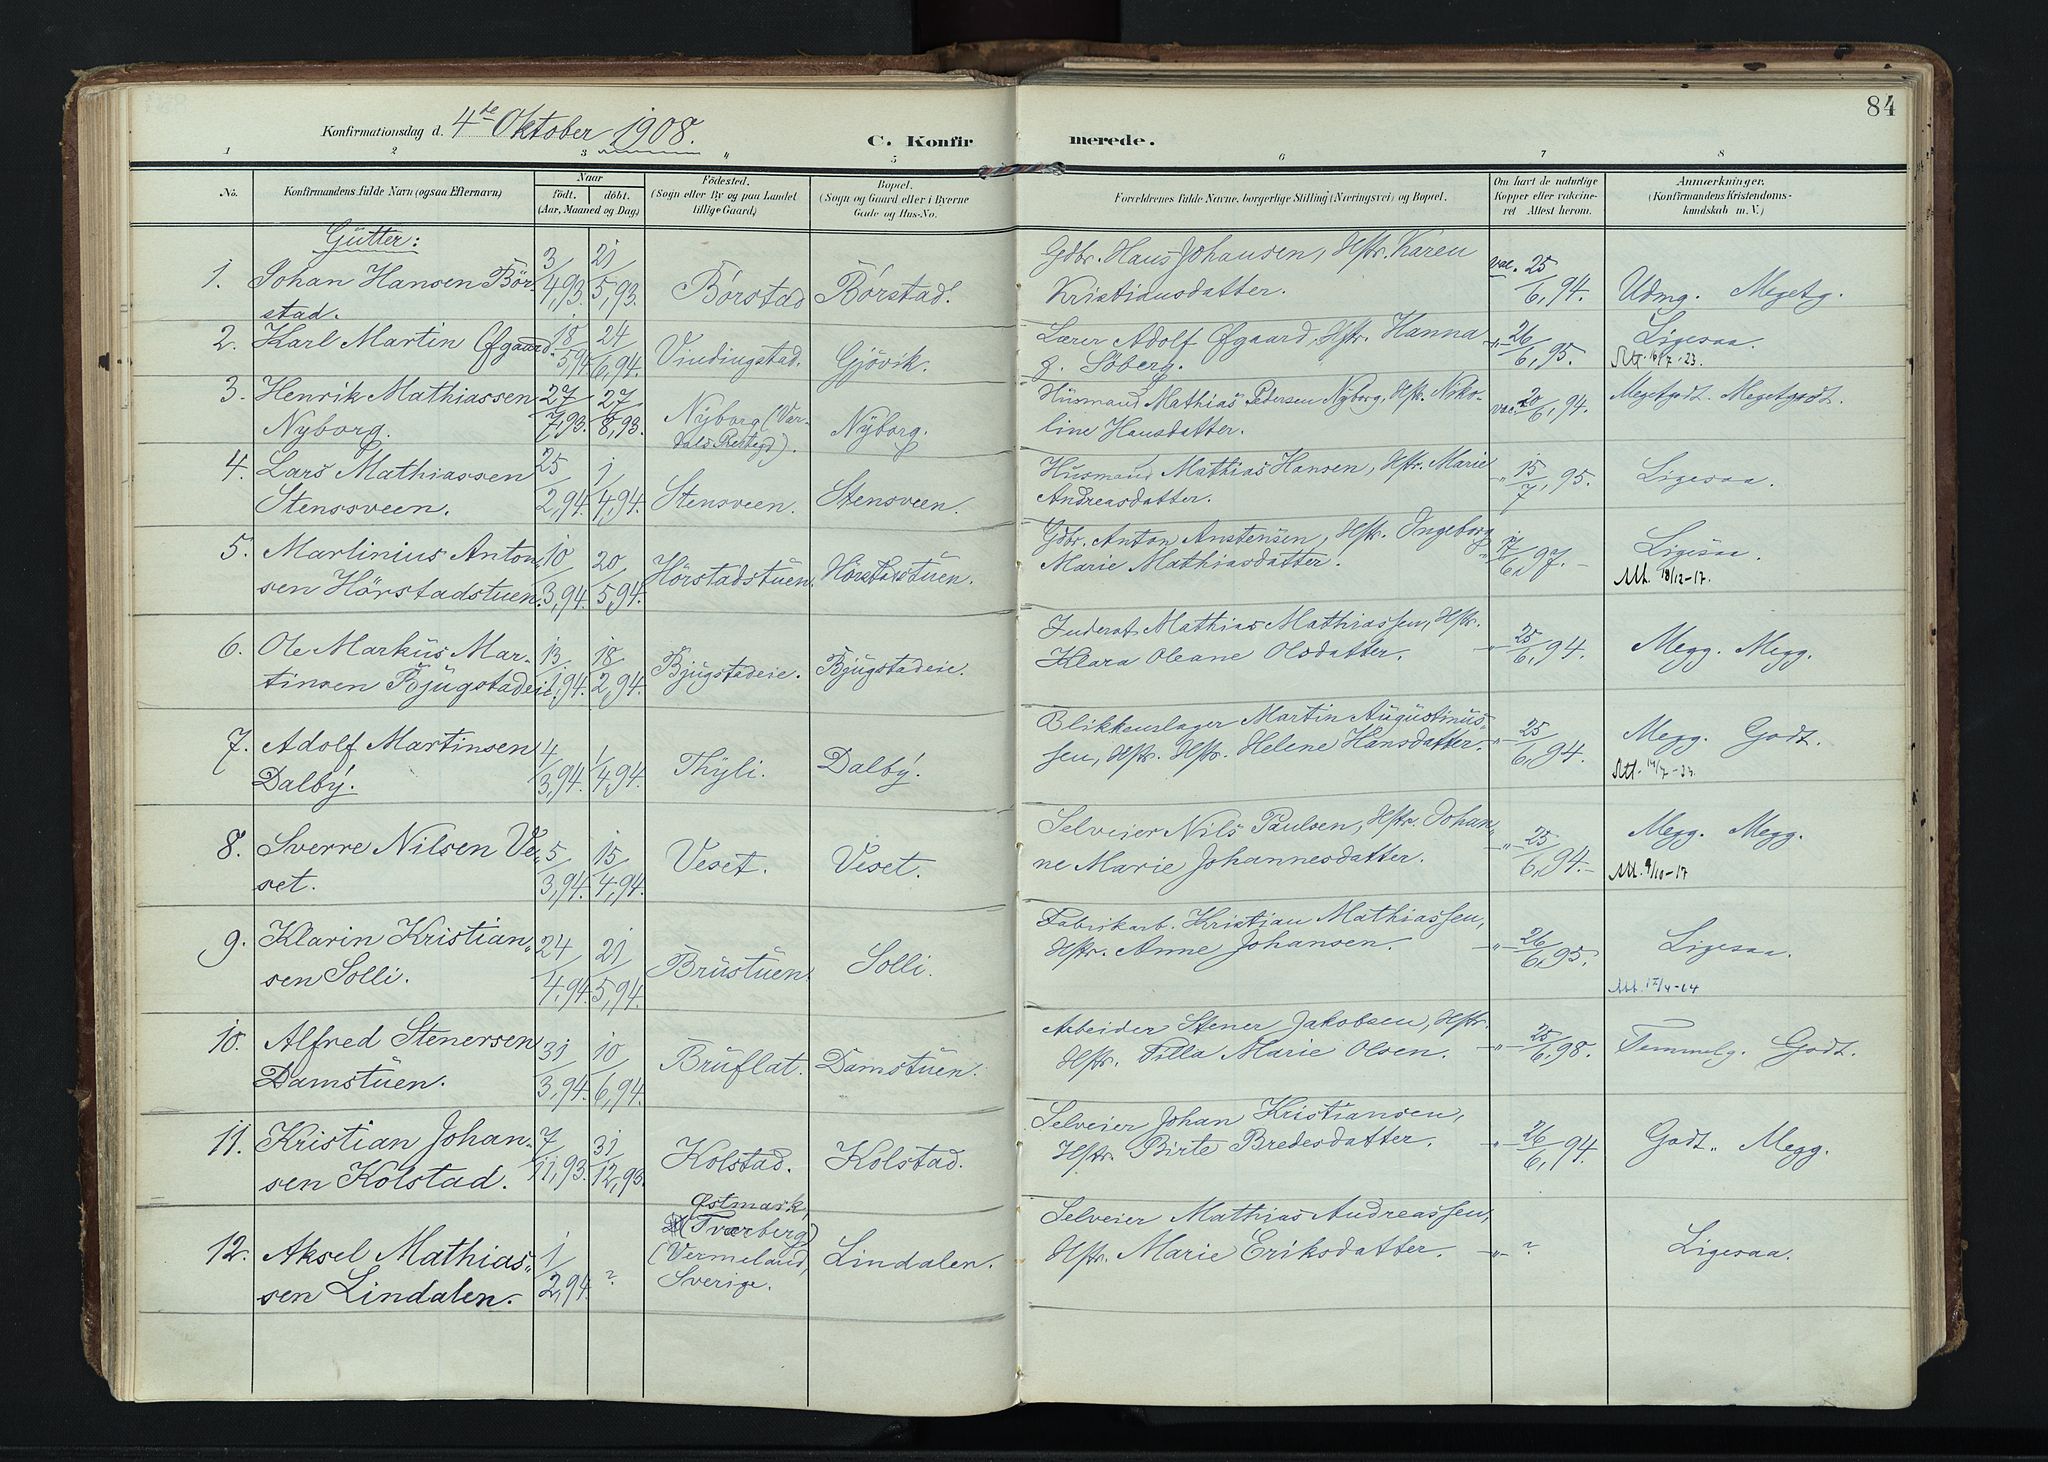 84
Konfirmationsdag d. 4de Oktober 1908.
C. Konfirmerede.
1 2 3 4 5 6 7 8
No. Konfirmandens fulde Navn (ogsaa Efternavn) Naar født. døbt. (Aar, Maaned og Dag) Fødested. (Sogn eller By og paa Landet tillige Gaard) Bopæl. (Sogn og Gaard eller i Byerne Gade og Hus-No. Forældrenes fulde Navne, borgerlige Stilling (Næringsvei) og Bopæl. Om havt de naturlige Kopper eller vakcineret Attest herom. Anmærkninger. (Konfirmandens Kristendomskundskab m. V.)
Gutter:
1. Johan Hansen Børstad. 3/4,93. 21/5,93. Børstad Børstad. Gdbr. Hans Johansen, Hstr. Karen Kristiansdatter. vac. 25/6,94. Udmg. Megetg.
2. Karl Martin Øfgaard. 18/5,94 24/6,94. Vindingstad. Gjøvik. Lærer Adolf Øfgaard, Hstr. Hanna f. Söberg. -"- 26/6,95. Ligesaa.
Att. 16/7-23.
3. Henrik Mathiassen Nyborg. 27/7,93. 27/8,93. Nyborg (Vardals Prestegd). Nyborg. Husmand Mathias Pedersen Nyborg, Hstr. Nikoline Hansdatter. vac. 20/6,94. Megetgodt. Megetgodt.
4. Lars Mathiassen Stenssveen. 25/2,94. 1/4,94. Stensveen. Stensveen. Husmand Mathias Hansen, Hstr. Marie Andreasdatter. " 15/7,95. Ligesaa.
5. Martinius Antonsen Hörstadstuen. 10/3,94. 20/5,94. Hörstadstuen. Hörstadstuen. Gdbr. Anton Anstensen, Hstr. Ingeborg Marie Mathiasdatter. " 17/6,97. Ligesaa.
Att. 18/12-17.
6. Ole Markus Martinsen Bjugstadeie. 13/1,94. 18/2,94. Bjugstadeie. Bjugstadeie. Inderst Mathias Mathiassen, Hstr. Klara Oleane Olsdatter. -"- 25/6,94. Megg. Megg.
7. Adolf Martinsen Dalby. 4/3,94. 1/4,94. Thyli. Dalby. Blikkenslager Martin Augustinussen, Hstr. Hstr. Helene Hansdatter. -"- 25/6,94. Megg. Godt.
8. Sverre Nilsen Veset. 5/3,94. 15/4,94. Veset. Veset. Selveier Nils Paulsen, Hstr. Johanne Marie Johannesdatter. -"- 25/6,94. Megg. Megg.
Att. 9/10-17
9. Klarin Kristiansen Solli. 24/4,94. 21/5,94. Brustuen. Solli. Fabrikarb. Kristian Mathiassen, Hstr. Anne Johansen. -"- 26/6,95. Ligesaa.
Att. 17/4-64
10. Alfred Stenersen Damstuen. 31/3,94. 10/6,94. Bruflat. Damstuen. Arbeider Stener Jakobsen, Hstr. Hstr. Pilla Marie Olsen. -"- 25/6,98. Temmelg. Godt.
11. Kristian Johansen Kolstad. 7/11,93. 31/12,93. Kolstad. Kolstad. Selveier Johan Kristiansen, Hstr. Birte Bredesdatter. -"- 26/6,94. Godt. Megg.
12. Aksel Mathiassen Lindalen. 1/2,94. ? Østmark, (Tværberg) (Vermeland, Sverige. Lindalen. Selveier Mathias Andreassen, Hstr. Marie Eriksdatter. -"- ? Ligesaa.